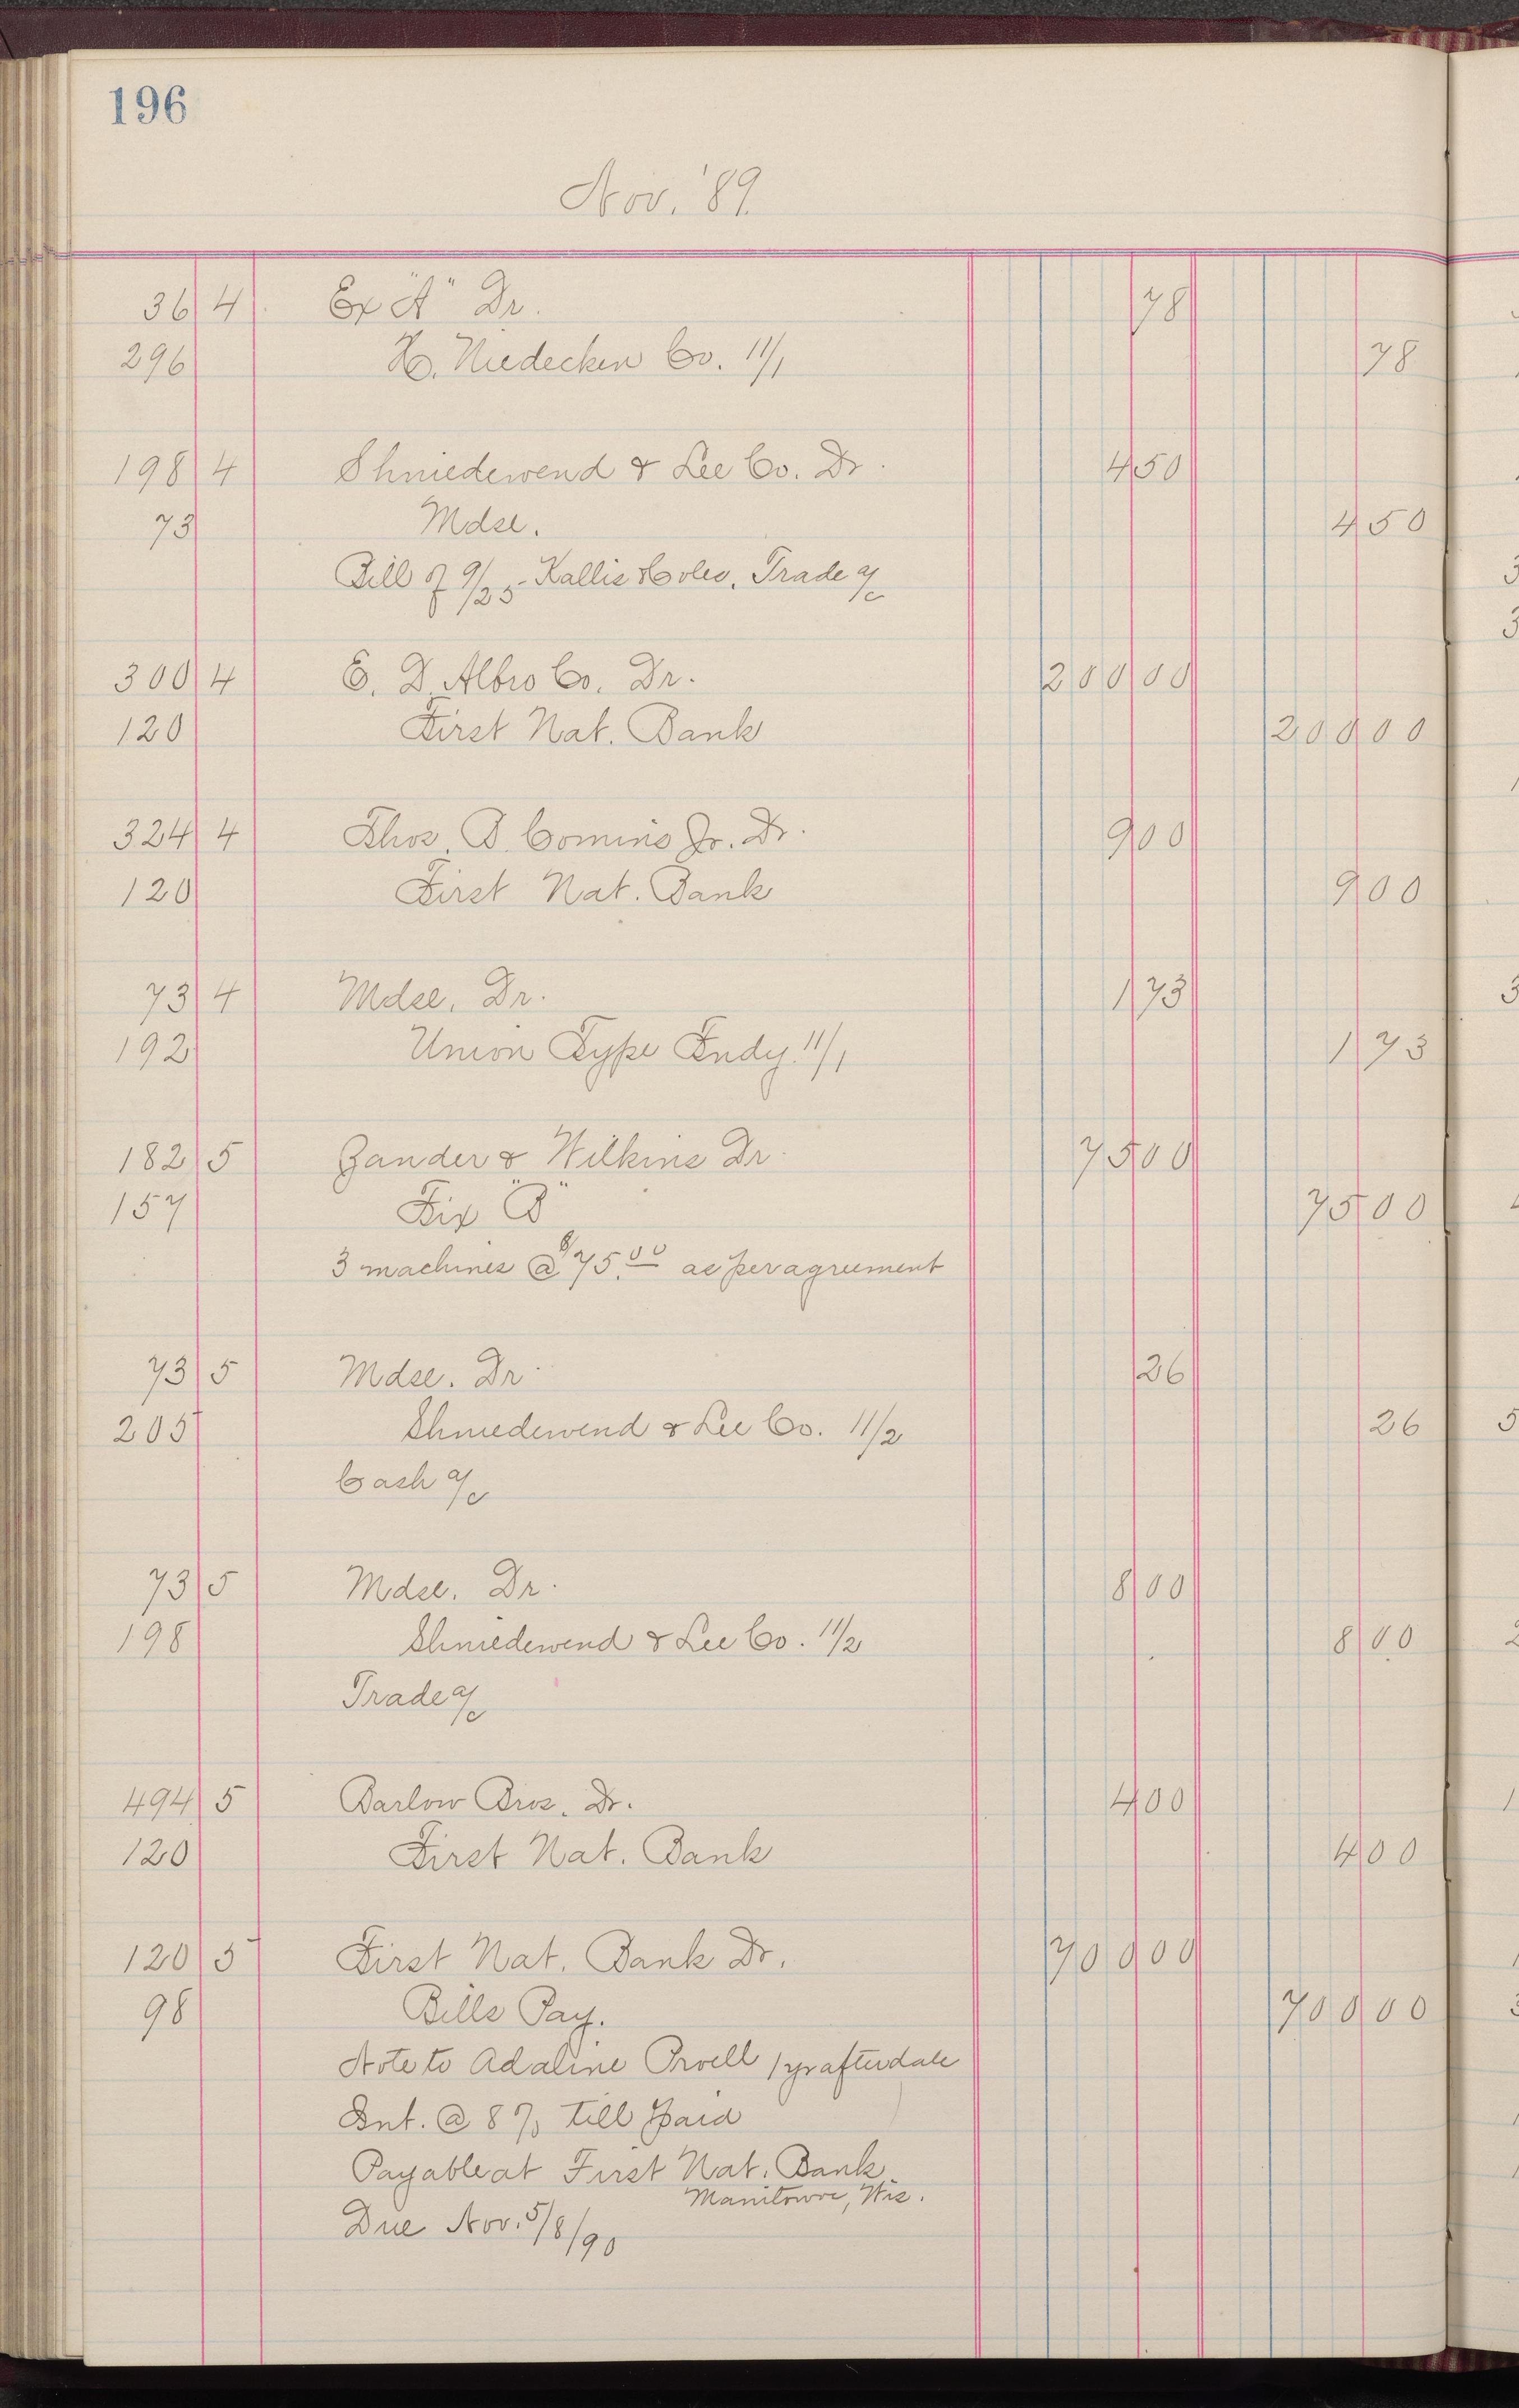 196
Nov. '89.
36 4 Ex "A" Dr. 78
296 H. Niedecken Co. 11/1 78
198 4 Shniedewend & Lee Co. Dr. 450
73 Mdse. 450
Bill of 9/25 - Kallis & Trade a/c
300 4 E. D. Albro Co. Dr. 20000
120 First Nat. Bank 20000
324 4 Thos. B. Comins Jr. Dr. 900
120 First Nat. Bank 900
73 4 Mdse. Dr. 173
192 Union Type Fndy. 11/1 173
182 5 Zander & Wilkins Dr. 7500
157 Fix "B" 7500
3 machines @ $75.00 as per agreement
73 5 Mdse. Dr. 26
205 Shniedewend & Lee Co. 11/2 26
Cash a/c
73 5 Mdse. Dr. 800
198 Shniedewend & Lee Co. 11/2 800
Trade a/c
494 5 Barlow Bros. Dr. 400
120 First Nat. Bank 400
120 5 First Nat. Bank Dr. 70000
98 Bills Pay. 70000
Note to Adaline Proell 1 yr after date
Int. @ 8% till paid
Payable at First Nat. Bank
Manitowoc, Wis.
Due Nov. 5/8/90